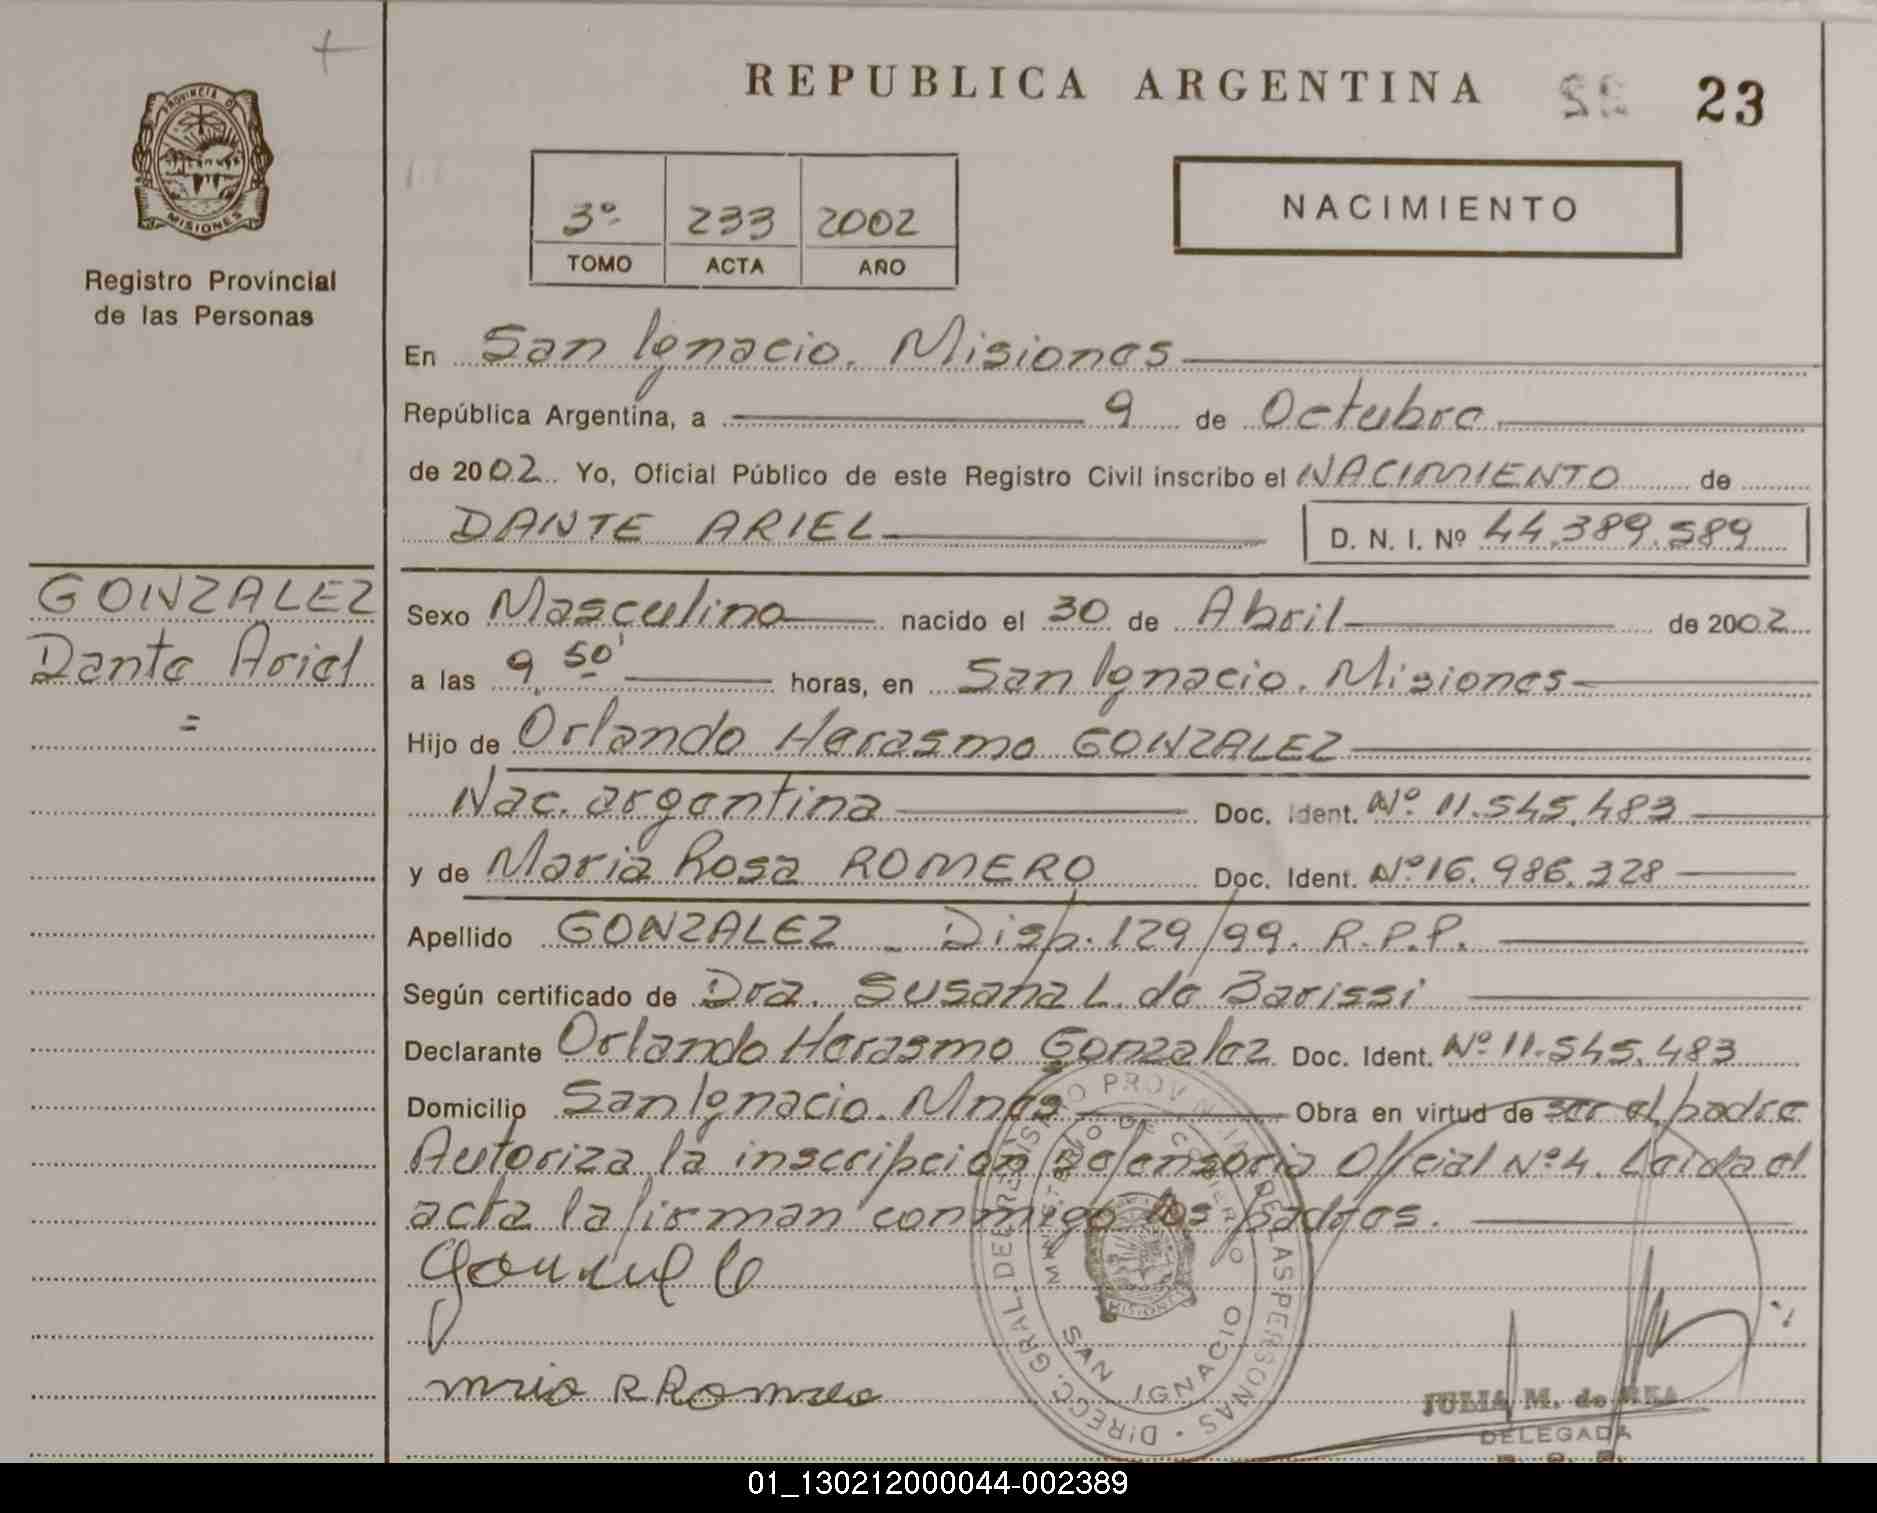 REPUBLICA ARGENTINA 23
PROVINCIA D
MISIONES
Registro Provincial
de las Personas
3º 233 2002
TOMO ACTA AÑO
NACIMIENTO
En San Ignacio. Misiones
República Argentina, a 9 de Octubre
de 2002. Yo, Oficial Público de este Registro Civil inscribo el NACIMIENTO de
DANTE ARIEL D. N. I. Nº 44.389.589
GONZALEZ
Dante Ariel
=
Sexo Masculino nacido el 30 de Abril de 2002
a las 9,50' horas, en San Ignacio. Misiones
Hijo de Orlando Herasmo GONZALEZ
Nac. argentina Doc. Ident. Nº 11.545.483
y de Maria Rosa ROMERO Doc. Ident. Nº 16.986.328
Apellido GONZALEZ - Disp. 129/99. R.P.P.
Según certificado de Dra. Susana L. de Barissi
Declarante Orlando Herasmo Gonzalez Doc. Ident. Nº 11.545.483
Domicilio San Ignacio. Mnes Obra en virtud de ser el padre
Autoriza la inscripcion Defensoria Oficial Nº 4. Leida el
acta la firman conmigo los padres.
DIRECC. GRAL. DEL REGISTRO PROVINCIAL DE LAS PERSONAS
MINISTERIO DE GOBIERNO
MISIONES
SAN IGNACIO
JULIA M. de REA
DELEGADA
01_130212000044-002389